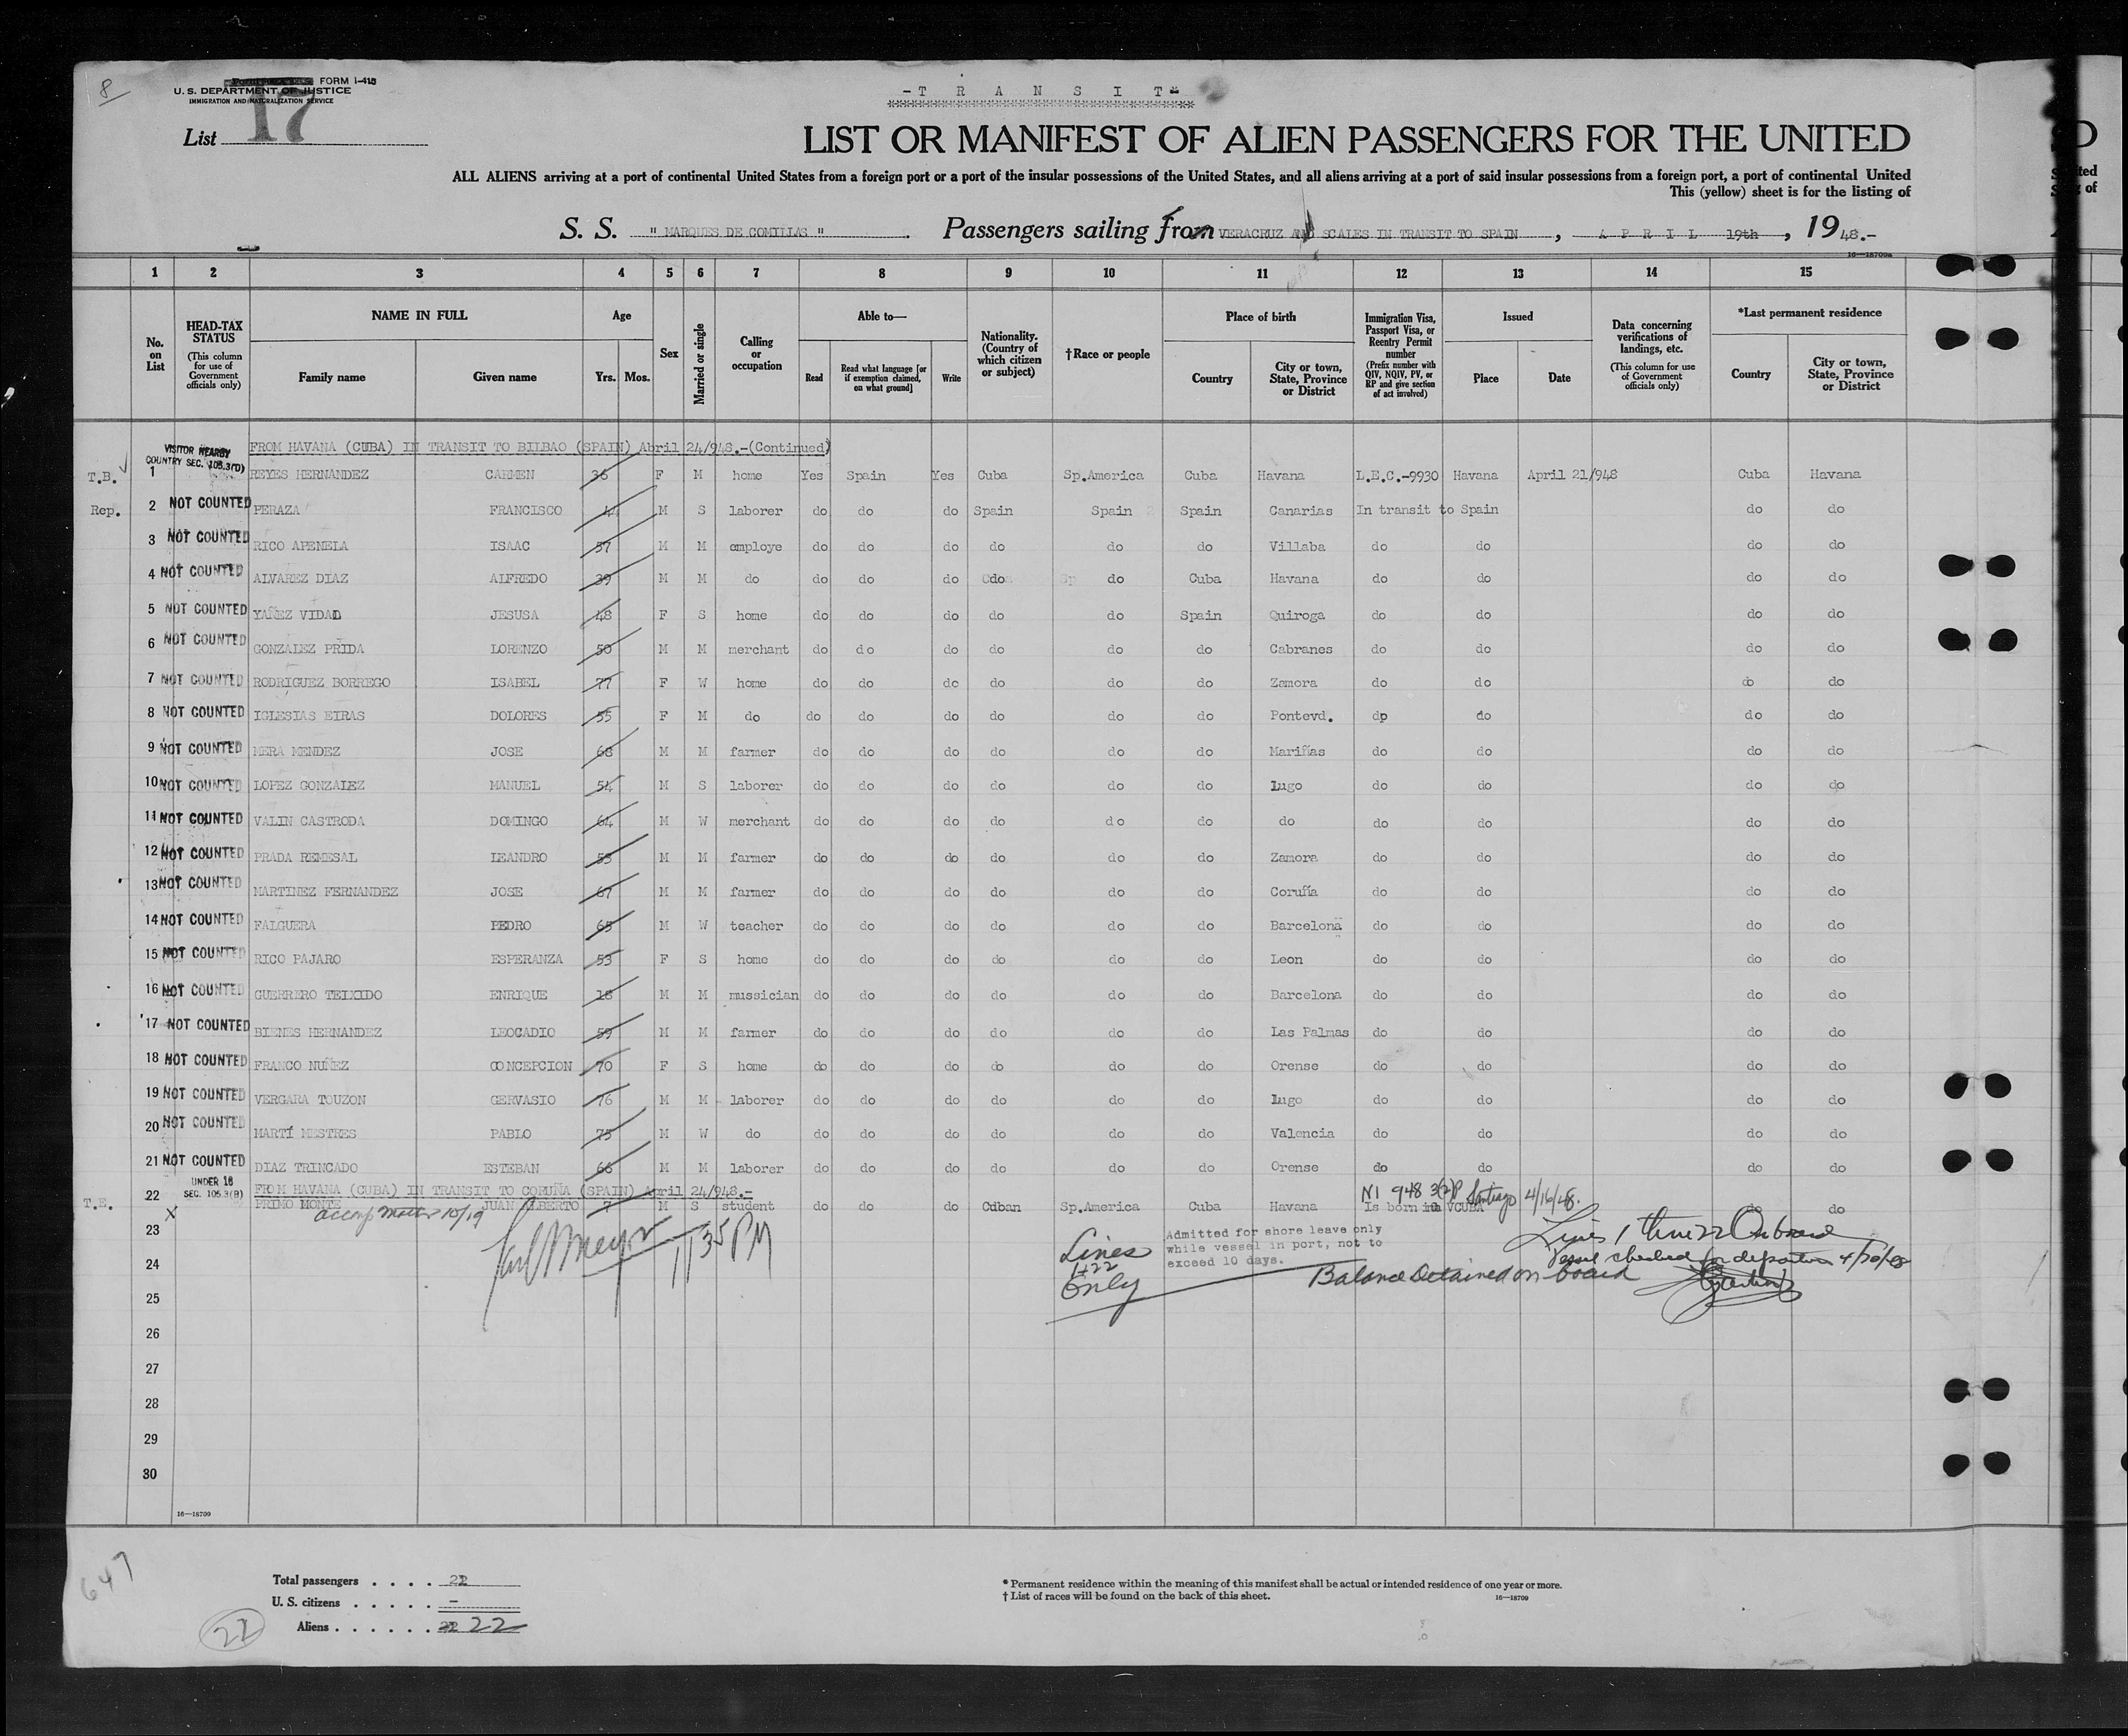 8
FORM I-415
U. S. DEPARTMENT OF JUSTICE
IMMIGRATION AND NATURALIZATION SERVICE
List 17
-T R A N S I T-
LIST OR MANIFEST OF ALIEN PASSENGERS FOR THE UNITED
ALL ALIENS arriving at a port of continental United States from a foreign port or a port of the insular possessions of the United States, and all aliens arriving at a port of said insular possessions from a foreign port, a port of continental United
This (yellow) sheet is for the listing of
S. S. " MARQUES DE COMILLAS " Passengers sailing from VERACRUZ AND SCALES IN TRANSIT TO SPAIN , A P R I L 19th , 19 48.-
16—18709a
1 2 3 4 5 6 7 8 9 10 11 12 13 14 15
No. on List
HEAD-TAX STATUS (This column for use of Government officials only)
NAME IN FULL Family name Given name
Age Yrs. Mos.
Sex
Married or single
Calling or occupation
Able to— Read Read what language [or if exemption claimed, on what ground] Write
Nationality. (Country of which citizen or subject)
†Race or people
Place of birth Country City or town, State, Province or District
Immigration Visa, Passport Visa, or Reentry Permit number (Prefix number with QIV, NQIV, PV, or RP and give section of act involved)
Issued Place Date
Data concerning verifications of landings, etc. (This column for use of Government officials only)
*Last permanent residence Country City or town, State, Province or District
VISITOR NEARBY COUNTRY SEC. 105.3(D)
FROM HAVANA (CUBA) IN TRANSIT TO BILBAO (SPAIN) Abril 24/948.-(Continued)
T.B. 1 REYES HERNANDEZ CARMEN 36 F M home Yes Spain Yes Cuba Sp.America Cuba Havana L.E.C.-9930 Havana April 21/948 Cuba Havana
Rep. 2 NOT COUNTED PERAZA FRANCISCO M S laborer do do do Spain Spain Spain Canarias In transit to Spain do do
3 NOT COUNTED RICO APENELA ISAAC 57 M M employe do do do do do do Villaba do do do do
4 NOT COUNTED ALVAREZ DIAZ ALFREDO 39 M M do do do do do do Cuba Havana do do do do
5 NOT COUNTED YAÑEZ VIDAL JESUSA 48 F S home do do do do do Spain Quiroga do do do do
6 NOT COUNTED GONZALEZ PRIDA LORENZO 50 M M merchant do do do do do do Cabranes do do do do
7 NOT COUNTED RODRIGUEZ BORREGO ISABEL 77 F W home do do do do do do Zamora do do do do
8 NOT COUNTED IGLESIAS EIRAS DOLORES 55 F M do do do do do do do Pontevd. dp do do do
9 NOT COUNTED MERA MENDEZ JOSE 68 M M farmer do do do do do do Mariñas do do do do
10 NOT COUNTED LOPEZ GONZALEZ MANUEL 54 M S laborer do do do do do do Lugo do do do do
11 NOT COUNTED VALIN CASTRODA DOMINGO 64 M W merchant do do do do do do do do do do do
12 NOT COUNTED PRADA REMESAL LEANDRO 55 M M farmer do do do do do do Zamora do do do do
13 NOT COUNTED MARTINEZ FERNANDEZ JOSE 67 M M farmer do do do do do do Coruña do do do do
14 NOT COUNTED FALGUERA PEDRO 65 M W teacher do do do do do do Barcelona do do do do
15 NOT COUNTED RICO PAJARO ESPERANZA 53 F S home do do do do do do Leon do do do do
16 NOT COUNTED GUERRERO TEIXIDO ENRIQUE 18 M M mussician do do do do do do Barcelona do do do do
17 NOT COUNTED BIENES HERNANDEZ LEOCADIO 59 M M farmer do do do do do do Las Palmas do do do do
18 NOT COUNTED FRANCO NUÑEZ CONCEPCION 70 F S home do do do do do do Orense do do do do
19 NOT COUNTED VERGARA TOUZON GERVASIO 76 M M laborer do do do do do do Lugo do do do do
20 NOT COUNTED MARTÍ MESTRES PABLO 75 M W do do do do do do do Valencia do do do do
21 NOT COUNTED DIAZ TRINCADO ESTEBAN 66 M M laborer do do do do do do Orense do do do do
UNDER 16 SEC. 105.3(B)
FROM HAVANA (CUBA) IN TRANSIT TO CORUÑA (SPAIN) April 24/948.-
NI 948 3(2)P Santiago 4/16/48.
T.E. 22 PRIMO MONTE JUAN ALBERTO 7 M S student do do do Cuban Sp.America Cuba Havana Is born in CUBA do do
X accomp mother 10/19
23
24
25
26
27
28
29
30
1135 PM
Lines 1+22 Only
Admitted for shore leave only
while vessel in port, not to
exceed 10 days.
Balance Detained on board
Lines 1 thru 22 Onboard
Vessel checked for departure 4/30/48
16—18709
647
Total passengers . . . . 22
U. S. citizens . . . . . –
Aliens . . . . . . 22 22
22
* Permanent residence within the meaning of this manifest shall be actual or intended residence of one year or more.
† List of races will be found on the back of this sheet.
16—18709